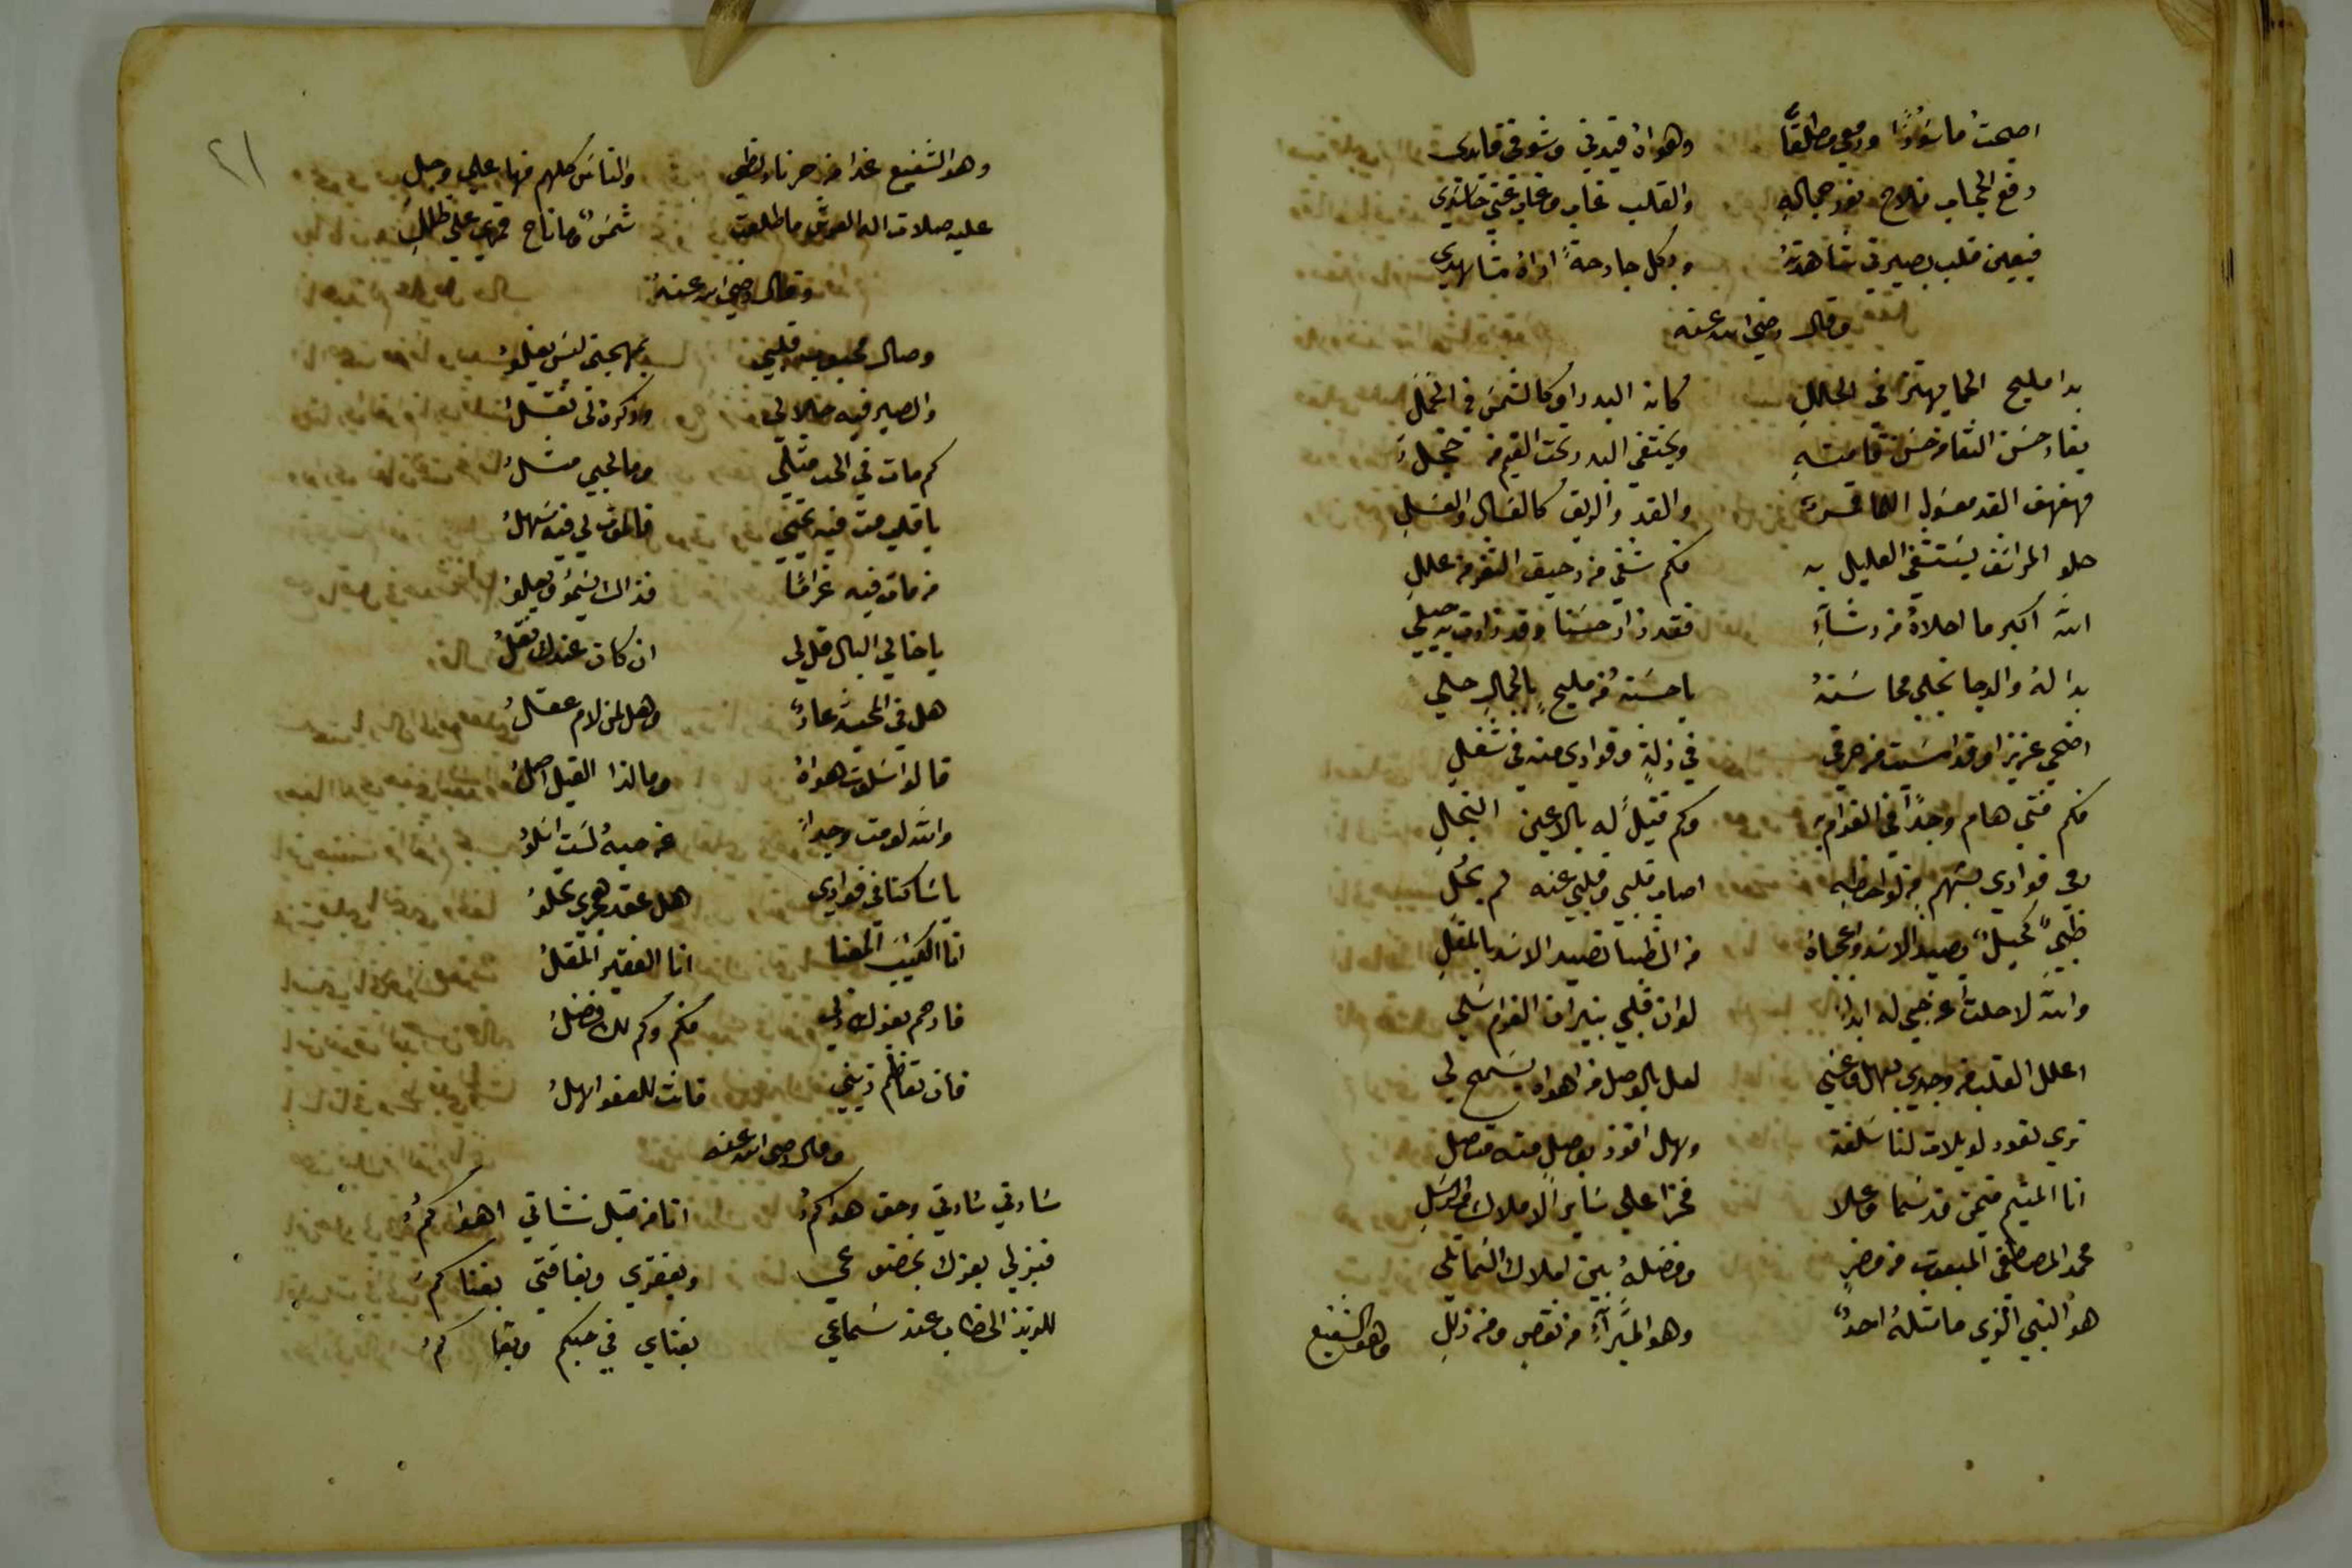 اصبحتُ ماسورًا ودمعي مطلقًا وهواهُ قيدني وشوقي قايدي
رفع الحجاب فلاح نور جماله والقلب غاب وغاب عني حاسدي
فبعين قلب بصيرتي شاهدتهُ وبكل جارحةً اراهُ مشاهدي
وقال رضي الله عنه
بدا مليح الحما يهتز في الحللِ كانه البدر او كالشمس في الحملِ
يغار حسن النقا من حسن قامتهِ ويختفي البدر تحت الغيم من خجلِ
مهفهف القد معسول اللما والقد والريق كالعسال والعسلِ
حلو المراشف يستشفي العليل به فكم شفي من رحيق الثغر من عللِ
الله اكبر ما احلاهُ من رشاءٍ فقد زاد حسنا وقد زادت به حيلي
بدا لهُ والدجا تجلي محاسنهُ ياحسنهُ من مليحٍ بالجمالِ حلي
اضحي عزيزا وقد امسيت من حرقي في ذلةٍ وفوادي منه في شغلِ
فكم فتي هام وجدًا في الغرام به وكم قتيلٍ له بالاعين النجلِ
رمي فوادي بسهم من لواحظه اصاب قلبي وقلبي عنه لم يحُلِ
ظبيٌ كحيلٌ يصيد الاسد واعجباهُ من الظبا تصيد الاسد بالمقلِ
والله لا حلتُ عن حبي له ابدا لو ان قلبي بنيران الغرام سلي
اعلل القلب من وجدي بهل وعسي لعل بالوصل من اهواه يسمح لي
تري تعود لويلات لنا سلفت وهل افوز بوصلٍ منه متصلِ
انا المتيم فيمن قد سما وعلا فخرًا علي ساير الاملاك والرسلِ
محمد المصطفي المبعوث من مضرٍ وفضلهُ بين املاك السما تلي
هو النبي الذي ما مثلهُ احدٌ وهو المبرآءُ من نقصٍ ومن زللِ
وهو الشفيع
٢١
وهو الشفيع غدا من حر نار لظي والناس كلهم فيها علي وجلِ
عليه صلات اله العرش ما طلعت شمسٌ وما ناح قمري علي طللِ
وقال رضي الله عنهُ
وصال محبوب قلبي بمهجتي ليس يغلوُ
والصبر فيه حلالي وذكره لي
كم مات في الحب مثلي وما لحبي مثلُ
يا قلبي مت فيه تحيي فالموت لي فيه سهلُ
من مات فيه غرامًا فذاك يسمُو ويعلوُ
يا خالي البال قل لي ان كان عندك نقلُ
هل في المحبة عارٌ وهل لمن لام عقلُ
قالوا سلوت هواهُ وما لذا القيل اصلُ
والله لو مت وجداً عن حبهُ لست اسلُو
يا ساكنا في فوادي هل عقد هجري يحلوُ
انا الكئيب المعنا انا الفقير المقلُ
فارحم بعزك ذلي فكم وكم لك فضلُ
فان تعاظم ذنبي فانت للعفو اهلُ
وقال رضي الله عنه
سادتي سادتي وحق هواكمُ انا من قبل نشاتي اهواكمُ
فبذلي بعزك بخضوعي وبفقري وبفاقتي بغناكمُ
للذيذ الخطاب عند سماعي بفناي في حبكم وبقا كمُ